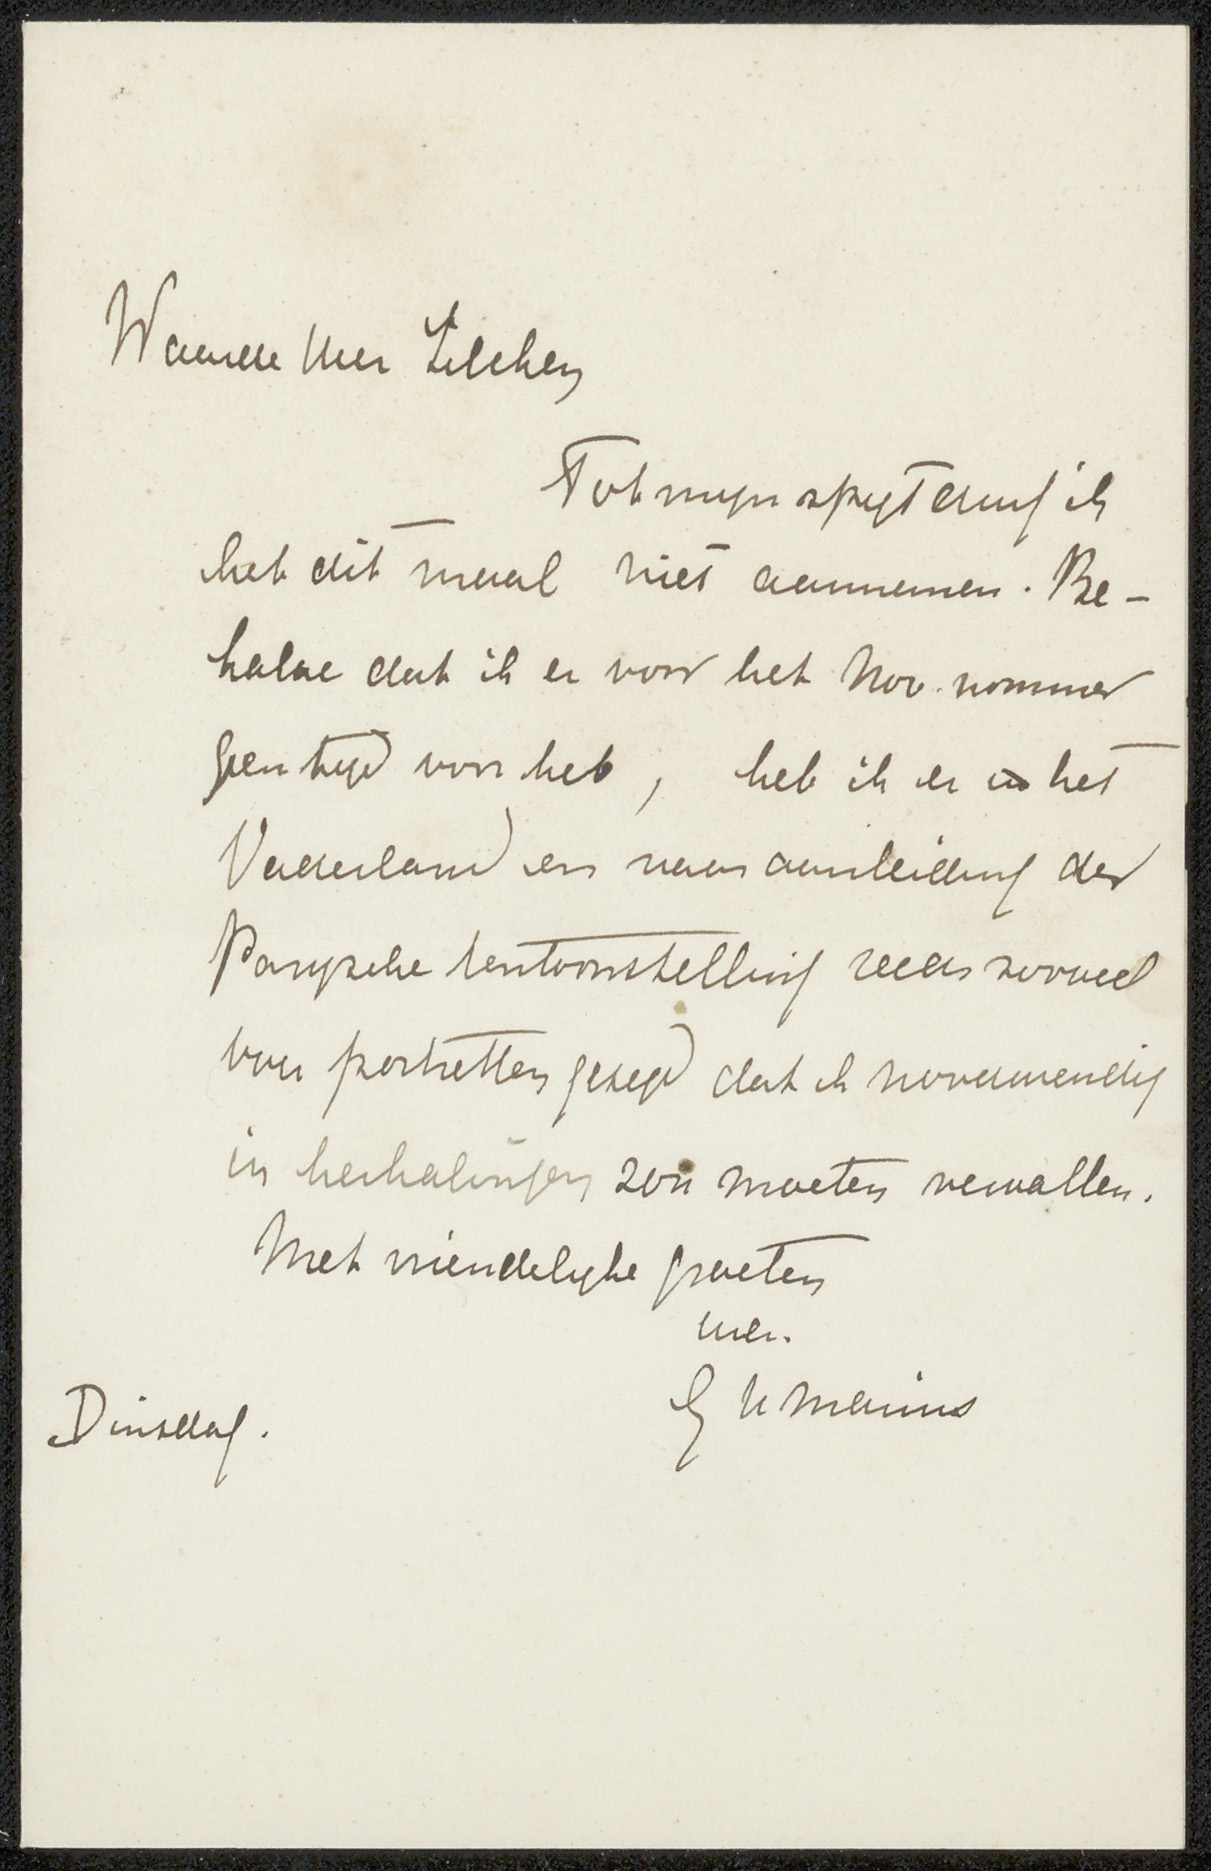 Waarde Heer Zilcken
Tot mijn spijt durf ik
het dit maal niet aannemen. Be-
halve dat ik er voor het Nov. nommer
geen tijd voor heb, heb ik er in het
Vaderland en naar aanleiding der
Parijsche tentoonstelling reeds zooveel
van portretten gezegd dat ik noodwendig
in herhalingen zou moeten vervallen.
Met vriendelijke groeten
uw.
G H Marius
Dinsdag.